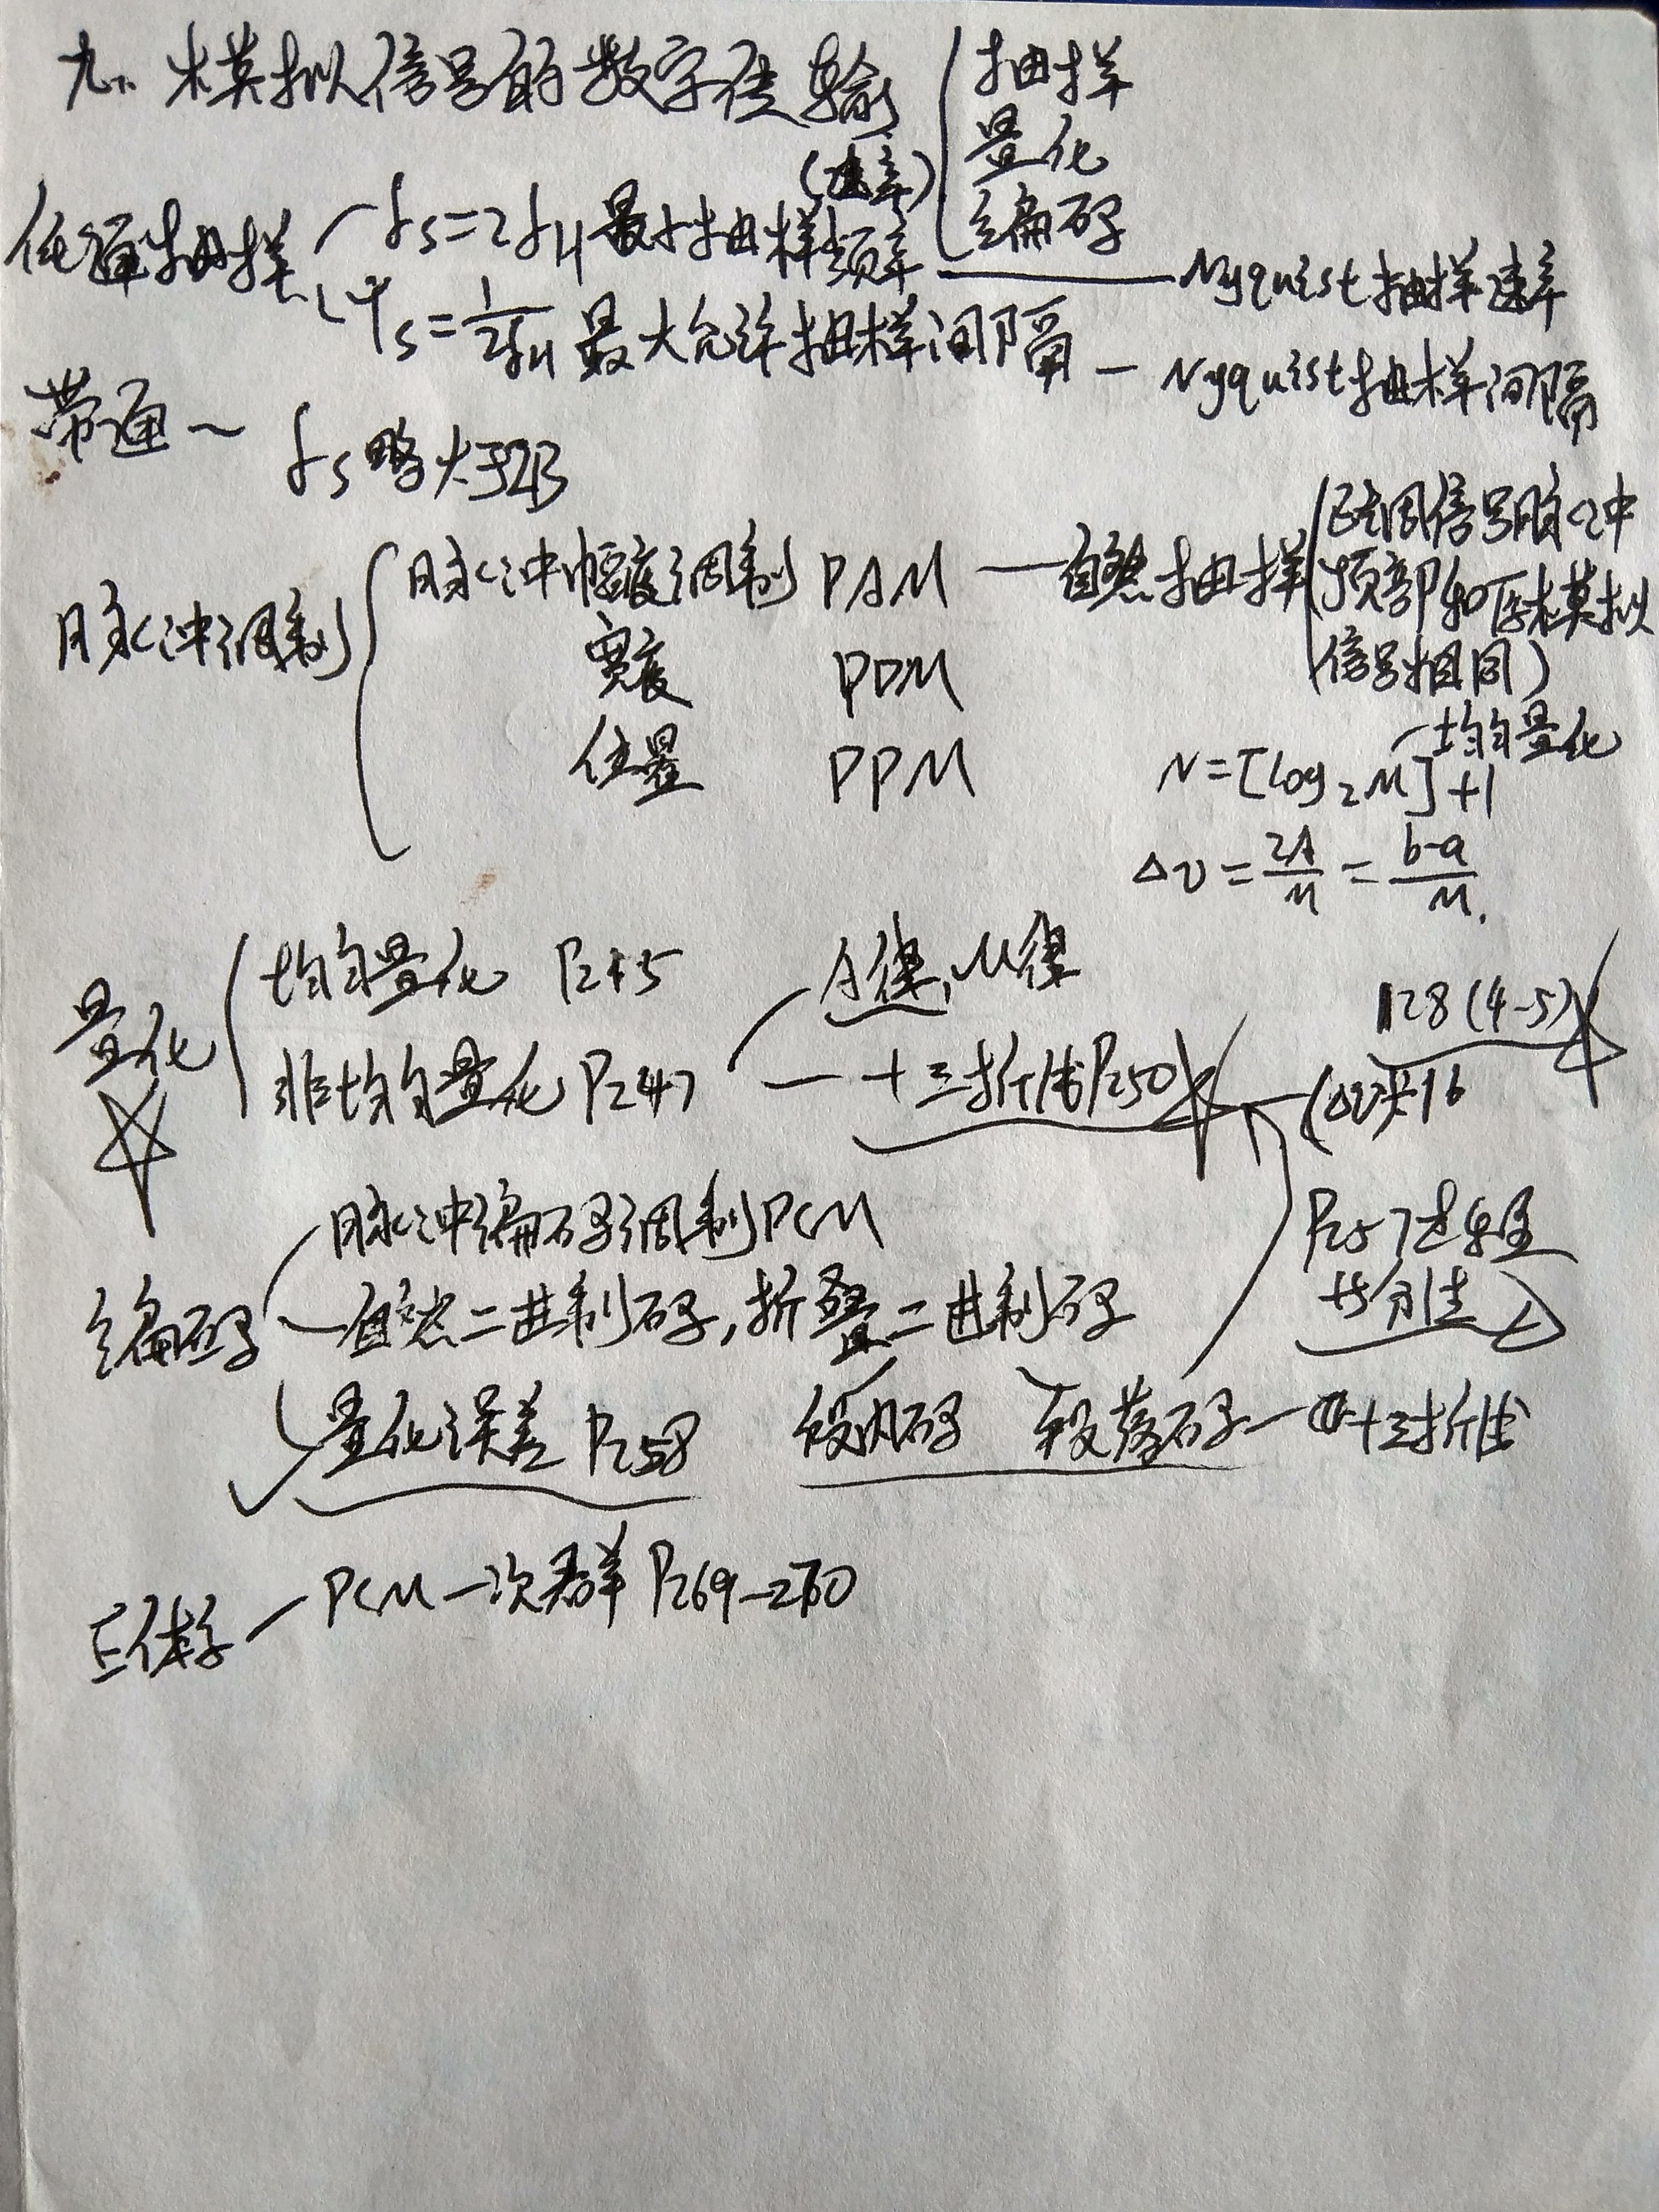 九、模拟信号的数字传输
抽样
量化
编码
(速率)
低通抽样 fs=2fH 最小抽样频率 — Nyquist抽样速率
Ts=1/2fH 最大允许抽样间隔 — Nyquist抽样间隔
带通~ fs略大于2B
脉冲调制 脉冲幅度调制 PAM — 自然抽样(已调信号脉冲
顶部和原模拟
信号相同)
宽度 PDM
位置 PPM
N=[log₂M]+1 均匀量化
Δv=2A/M=b-a/M.
量化 均匀量化 P245
非均匀量化 P247 A律,M律
十三折线P250
128(4-5)
(Δv)÷16
编码 脉冲编码调制PCM
自然二进制码,折叠二进制码
量化误差 P258
段内码 段落码 — 十三折线
P257
E体系 — PCM一次群 P269-270